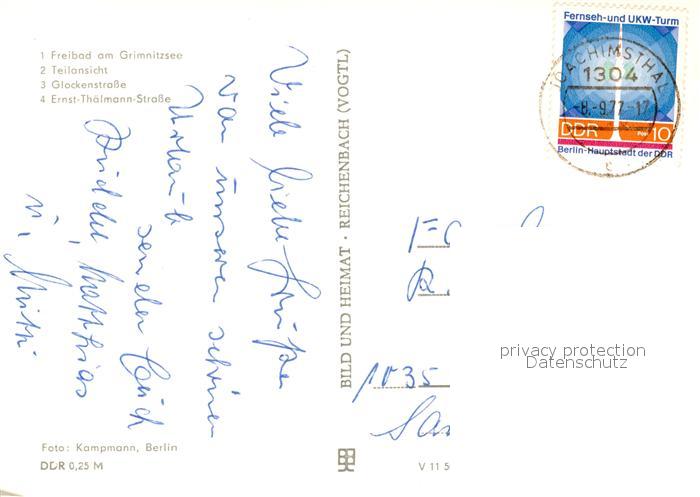 1 Freibad am Grimnitzsee
2 Teilansicht
3 Glockenstraße
4 Ernst-Thälmann-Straße
Viele liebe Grüße
von unserem schönen
Urlaub
senden Euch
Matthias
u. Mutti
Foto: Kampmann, Berlin
DDR 0,25 M
BILD UND HEIMAT · REICHENBACH (VOGTL)
V 11 5
Fernseh-und UKW-Turm
JOACHIMSTHAL
1304
-8.-9.77-17
DDR 10
Berlin-Hauptstadt der DDR
1035
privacy protection
Datenschutz